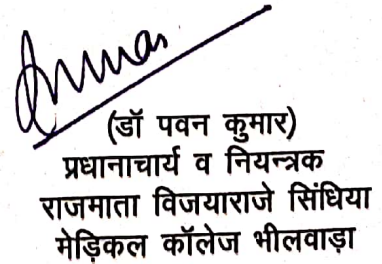 (डॉ पवन कुमार)
प्रधानाचार्य व नियन्त्रक
राजमाता विजयाराजे सिंधिया
मेड़िकल कॉलेज भीलवाड़ा